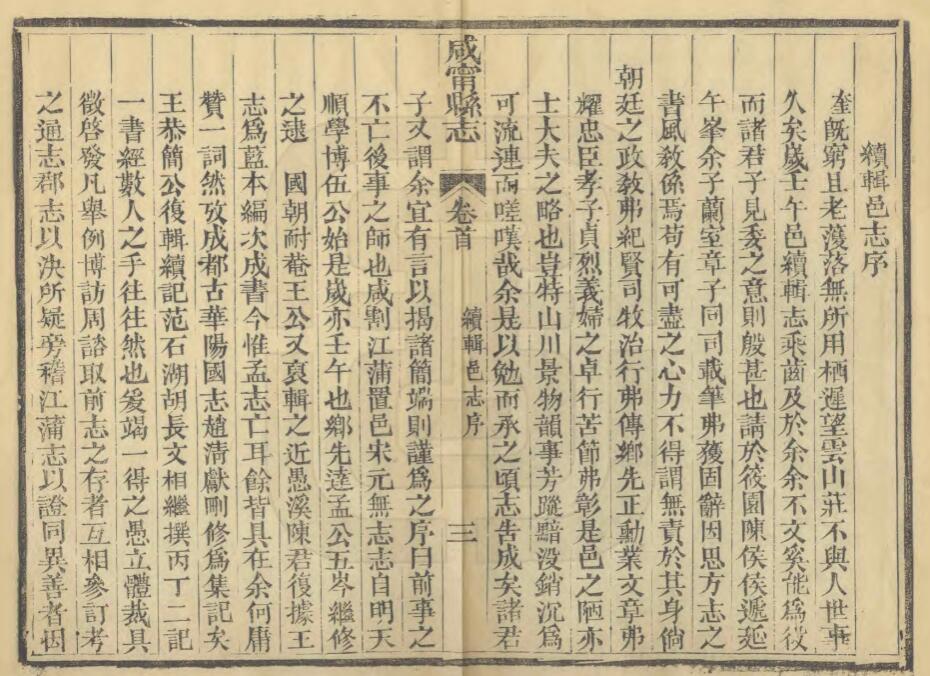 續輯邑志序
奎既窮且老濩落無所用栖遲望雲山莊不與人世事
久矣歲壬午邑續輯志乘齒及於余余不文奚能爲役
而諸君子見委之意則殷甚也請於筱園陳侯侯遞延
午峯余子蘭室章子同司載筆弗獲固辭因思方志之
書風敎係焉苟有可盡之心力不得謂無責於其身倘
朝廷之政敎弗紀賢司牧治行弗傳鄉先正勳業文章弗
耀忠臣孝子貞烈義婦之卓行苦節弗彰是邑之陋亦
士大夫之略也豈特山川景物韻事芳蹤黯没銷沉爲
可流連而嗟嘆哉余是以勉而承之頃志吿成矣諸君
咸甯縣志
卷首
續輯邑志序
三
子又謂余宜有言以揭諸簡端則謹爲之序曰前事之
不亡後事之師也咸割江蒲置邑宋元無志志自明天
順學博伍公始是歲亦壬午也鄉先達孟公五岑繼修
之逮 國朝耐菴王公又裒輯之近愚溪陳君復據王
志爲藍本編次成書今惟孟志亡耳餘皆具在余何庸
贊一詞然攷成都古華陽國志趙淸獻刪修爲集記矣
王恭簡公復輯續記范石湖胡長文相繼撰丙丁二記
一書經數人之手往往然也爰竭一得之愚立體裁具
徵啓發凡舉例博訪周諮取前志之存者互相參訂考
之通志郡志以決所疑旁稽江蒲志以證同異善者因